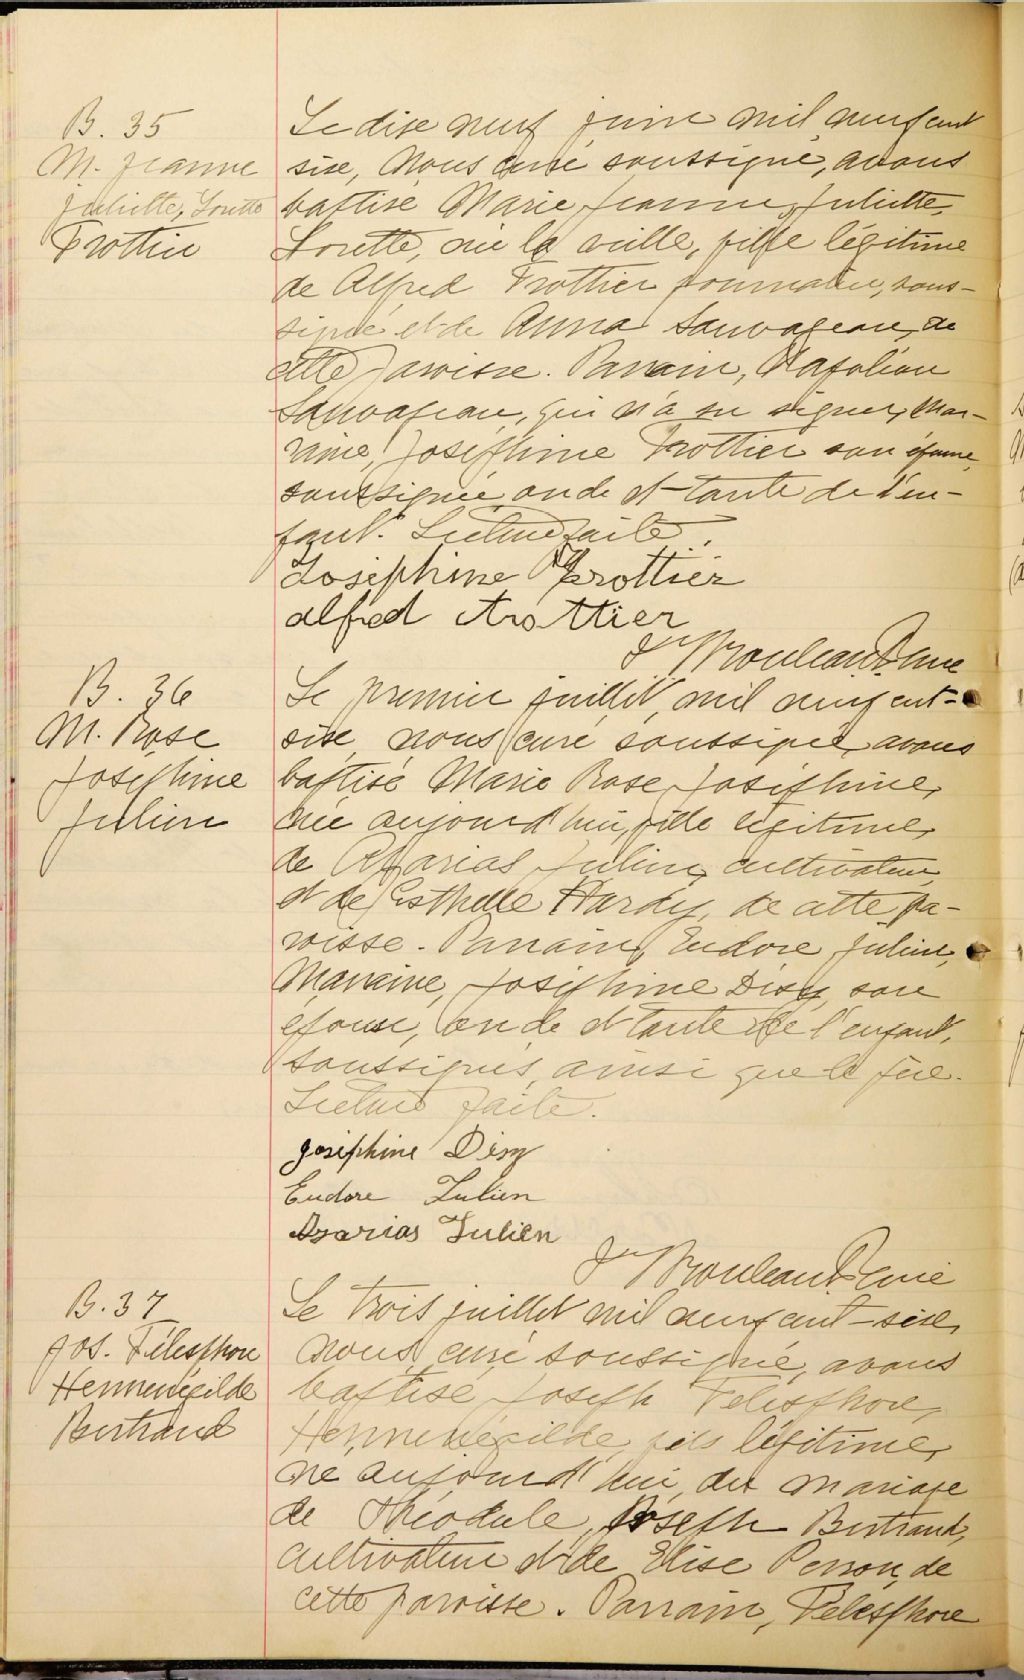 B. 35
M. Jeanne
Juliette, Lorette
Trottier
Le dixe neuf juin mil neuf cent
sixe, nous curé soussigné, avons
baptisé Marie Jeanne, Juliette,
Lorette, née la veille, fille légitime
de Alfred Trottier journalier, sous-
signé et de Anna Sauvageau, de
cette paroisse. Parrain, Napoléon
Sauvageau, qui n'a su signer, Mar-
raine, Joséphine Trottier son épouse,
soussignée oncle et tante de l'en-
fant. Lecture faite.
Joséphine Trottier
alfred trottier
J Rouleau Ptre Curé
B. 36
M. Rose
Joséphine
Julien
Le premier juillet, mil neuf cent-
sixe, nous curé soussigné avons
baptisé Marie Rose Joséphine,
née aujourd'hui, fille légitime,
de Azarias Julien, cultivateur,
et de Esthelle Hardy, de cette pa-
roisse. Parrain, Eudore Julien,
Marraine, Joséphine Disy son
épouse, oncle et tante de l'enfant,
soussignés, ainsi que le père.
Lecture faite.
Joséphine Disy
Eudore Julien
Azarias Julien
J Rouleau Ptre Curé
B. 37
Jos. Télesphore
Hermenégilde
Bertrand
Le trois juillet mil neuf cent-sixe,
nous curé soussigné, avons
baptisé Joseph Télesphore,
Herménégilde, fils légitime,
né aujourd'hui, du mariage
de Théodule Joseph Bertrand,
cultivateur et de Elise Perron, de
cette paroisse. Parrain, Télesphore